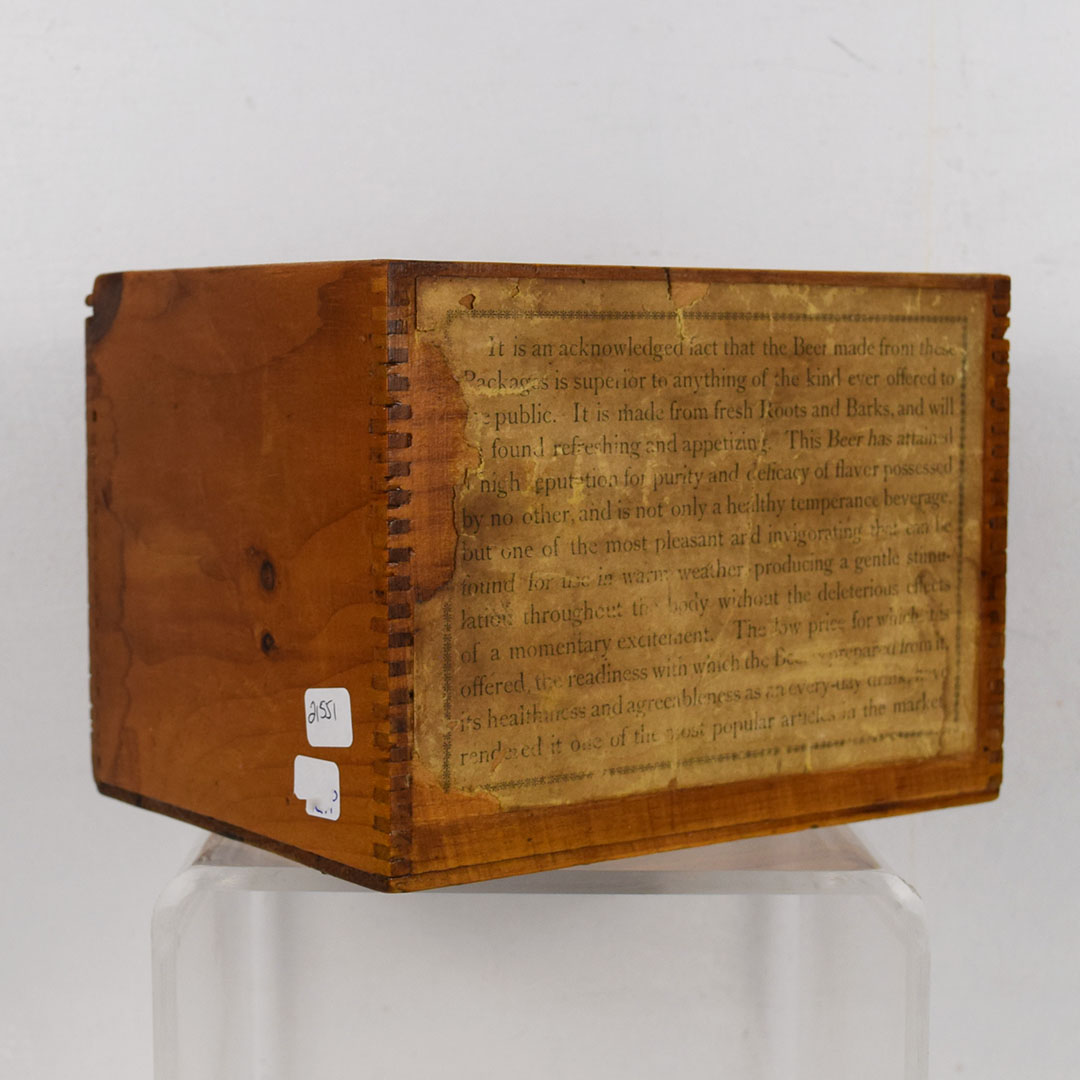 21551
It is an acknowledged fact that the Beer made from these
Packages is superior to anything of the kind ever offered to
public. It is made from fresh Roots and Barks, and will
found refreshing and appetizing. This Beer has attained
high reputation for purity and delicacy of flavor possessed
by no other, and is not only a healthy temperance beverage,
but one of the most pleasant and invigorating that can be
found for use in warm weather, producing a gentle stimu-
lation throughout the body without the deleterious effects
of a momentary excitement. The low price for which it is
offered, the readiness with which the Beer prepared from it,
its healthiness and agreeableness as an every-day drink, have
rendered it one of the most popular articles in the market